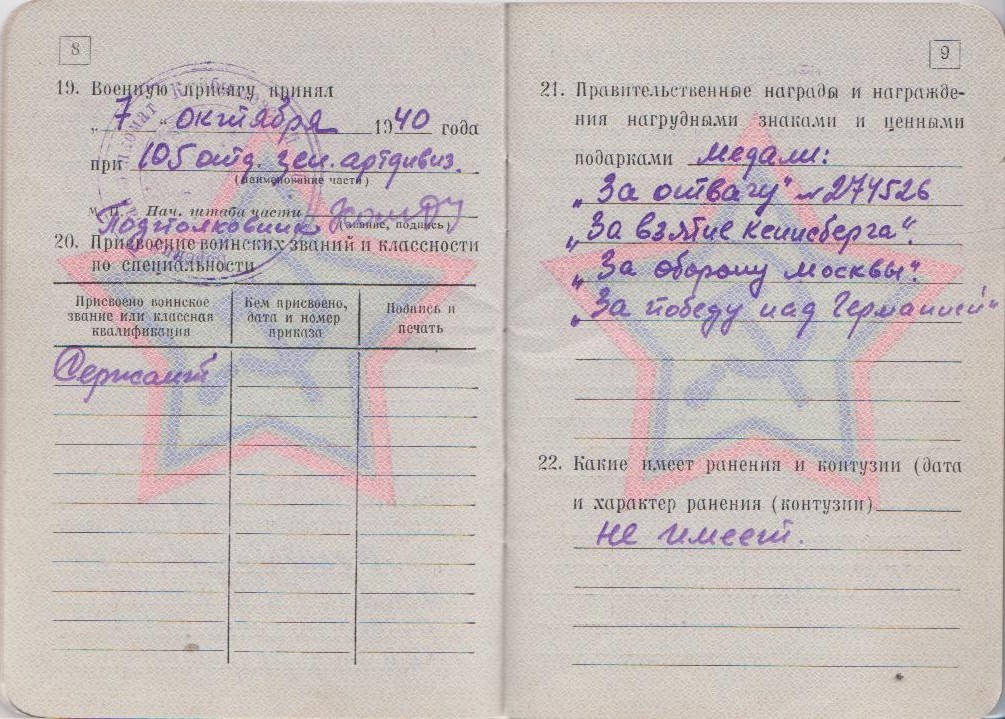 8
19. Военную присягу принял
„ 7 “ октября 1940 года
при 105 отд. зен. артдивиз.
(наименование части)
м. п. Нач. штаба части
(звание, подпись)
Подполковник
20. Присвоение воинских званий и классности
по специальности
Присвоено воинское звание или классная квалификация
Кем присвоено, дата и номер приказа
Подпись и печать
Сержант
9
21. Правительственные награды и награжде-
ния нагрудными знаками и ценными
подарками медали:
„За отвагу“ № 274526
„За взятие Кенисберга“.
„За оборону Москвы“.
„За победу над Германией“
22. Какие имеет ранения и контузии (дата
и характер ранения (контузии)
не имеет.